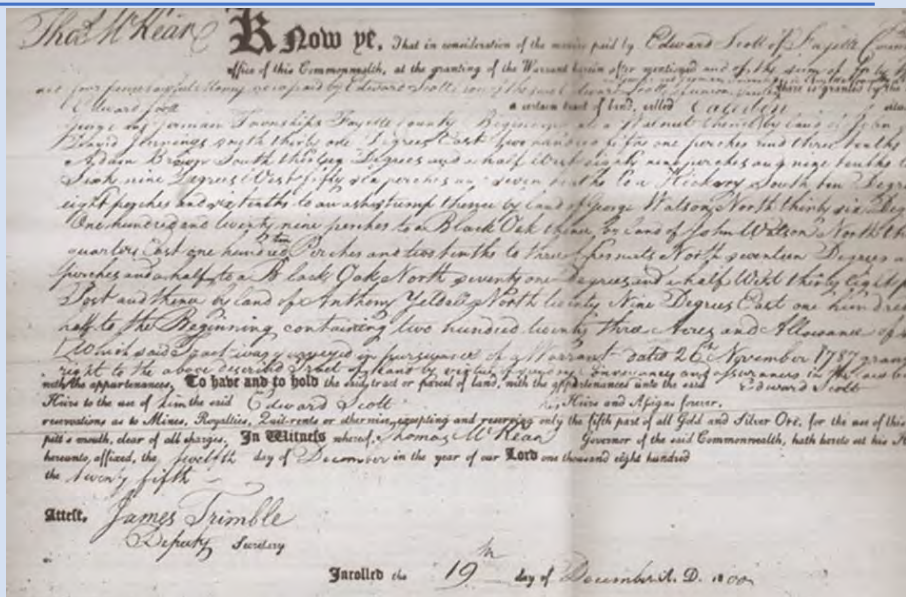 Thos McKean
Know ye, That in consideration of the monies paid by Edward Scott of Fayette
office of this Commonwealth, at the granting of the Warrant herein after mentioned and of the sum of
paid by Edward Scott there is granted by the
Edward Scott a certain tract of land, called
George and German Townships Fayette County Beginning at a Walnut thence by land of John
David Jennings south thirty one Degrees East two hundred perches and three tenths
Adam Brown South thirteen Degrees and a half West eighty nine perches and nine tenths
nine Degrees West fifty six perches and seven tenths to a Hickory South ten Degrees
eight perches and six tenths to an ash stump thence by land of George Watson North thirty six
One hundred and twenty nine perches to a Black Oak thence by land of John Watson North
quarters East one hundred & ten Perches and two tenths to North seventeen Degrees
perches and a half to a Black Oak North seventy one Degrees and a half West thirty eight
Post and thence by land of Anthony North twenty Nine Degrees East one hundred
half to the Beginning containing two hundred twenty three Acres and Allowance of
Which said Tract was surveyed in pursuance of a Warrant dated 26th November 1787
right to the above described Tract of land by virtue of conveyances and assurances in the
with the appurtenances, To have and to hold the said tract or parcel of land, with the appurtenances unto the said Edward Scott
Heirs to the use of him the said Edward Scott his Heirs and Assigns forever,
reservations as to Mines, Royalties, Quit-rents or otherwise, excepting and reserving only the fifth part of all Gold and Silver Ore, for the use of this
pitt's mouth, clear of all charges, In Witness whereof, Thomas McKean Governor of the said Commonwealth, hath hereto set his
hereunto, affixed, the twelfth day of December in the year of our Lord one thousand eight hundred
the twenty fifth
Attest, James Trimble
Deputy Secretary
Inrolled the 19th day of December A. D. 1800